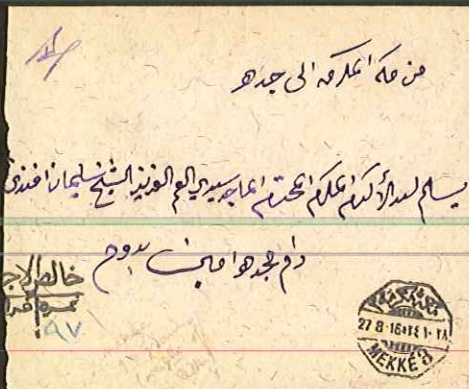 من مكة المكرمه الى جده
يسلم ليد الأكرم المكرم المحترم الماجد سيدي العم العزيز الشيخ سليمان افندي
دام مجده امين بدوح
خالص الاجر
٩٧
27 8-16
MEKKE